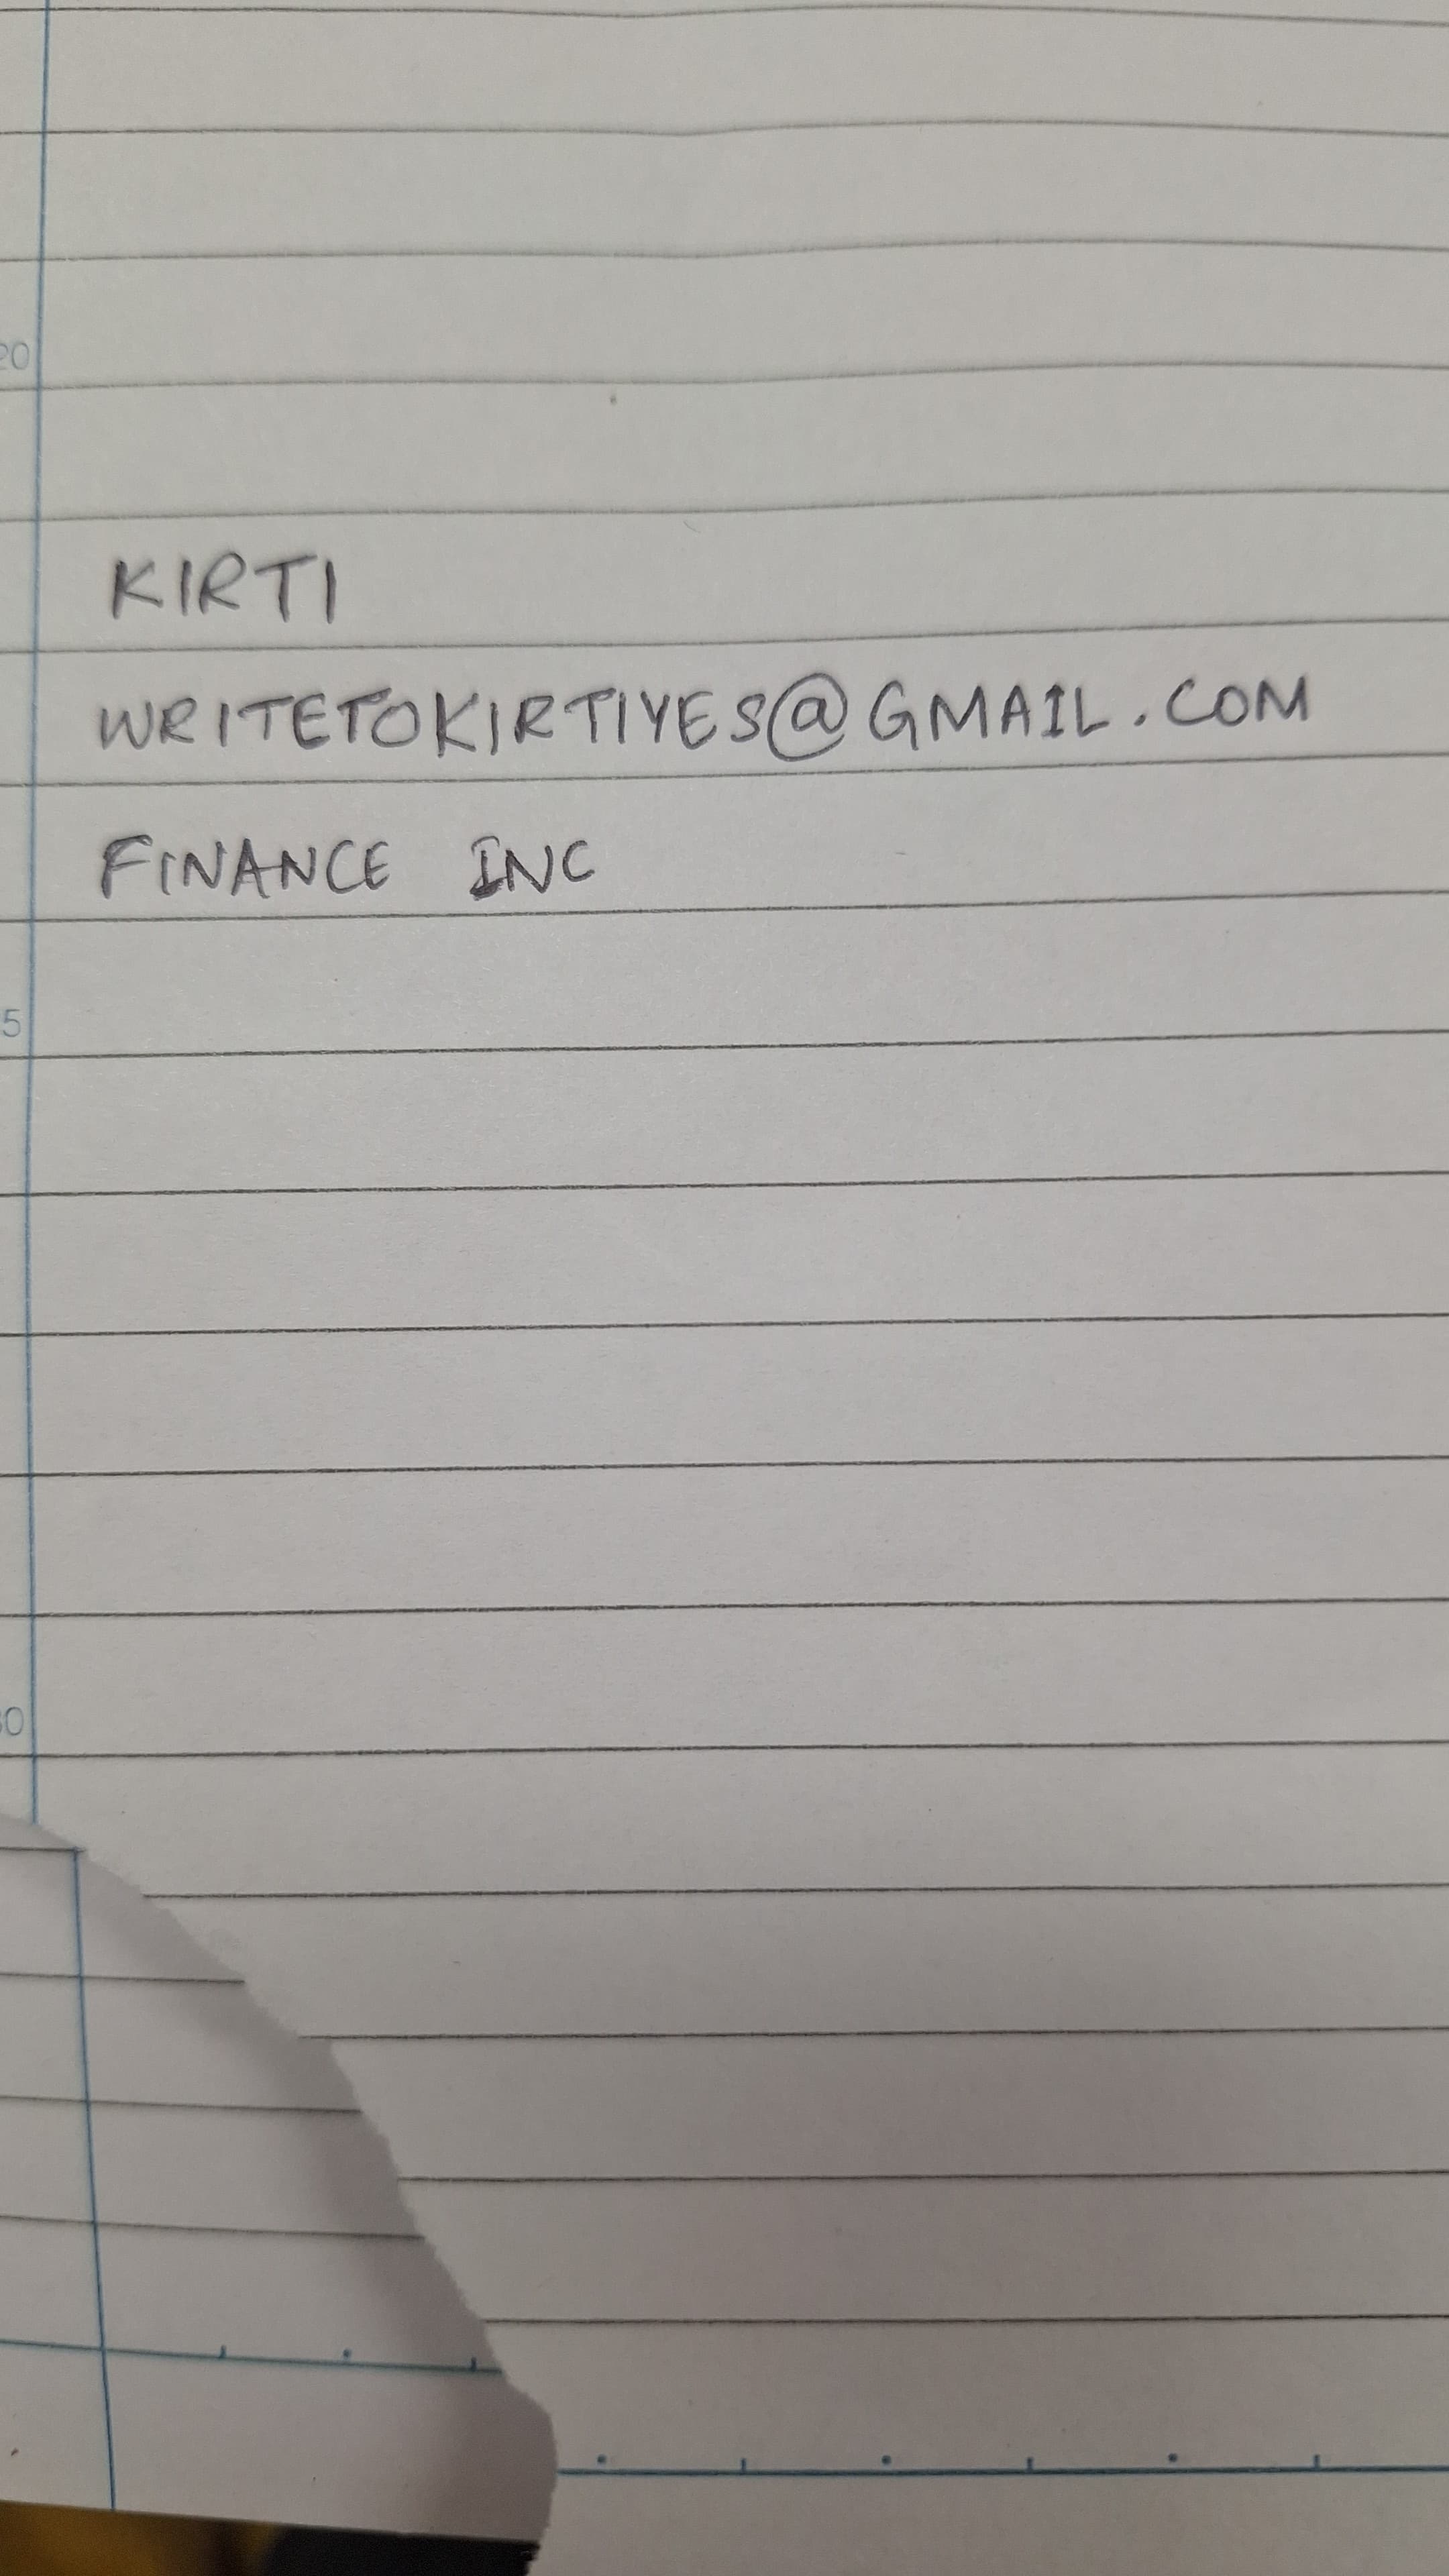 20
KIRTI
WRITETOKIRTIYES@GMAIL.COM
FINANCE INC
5
30